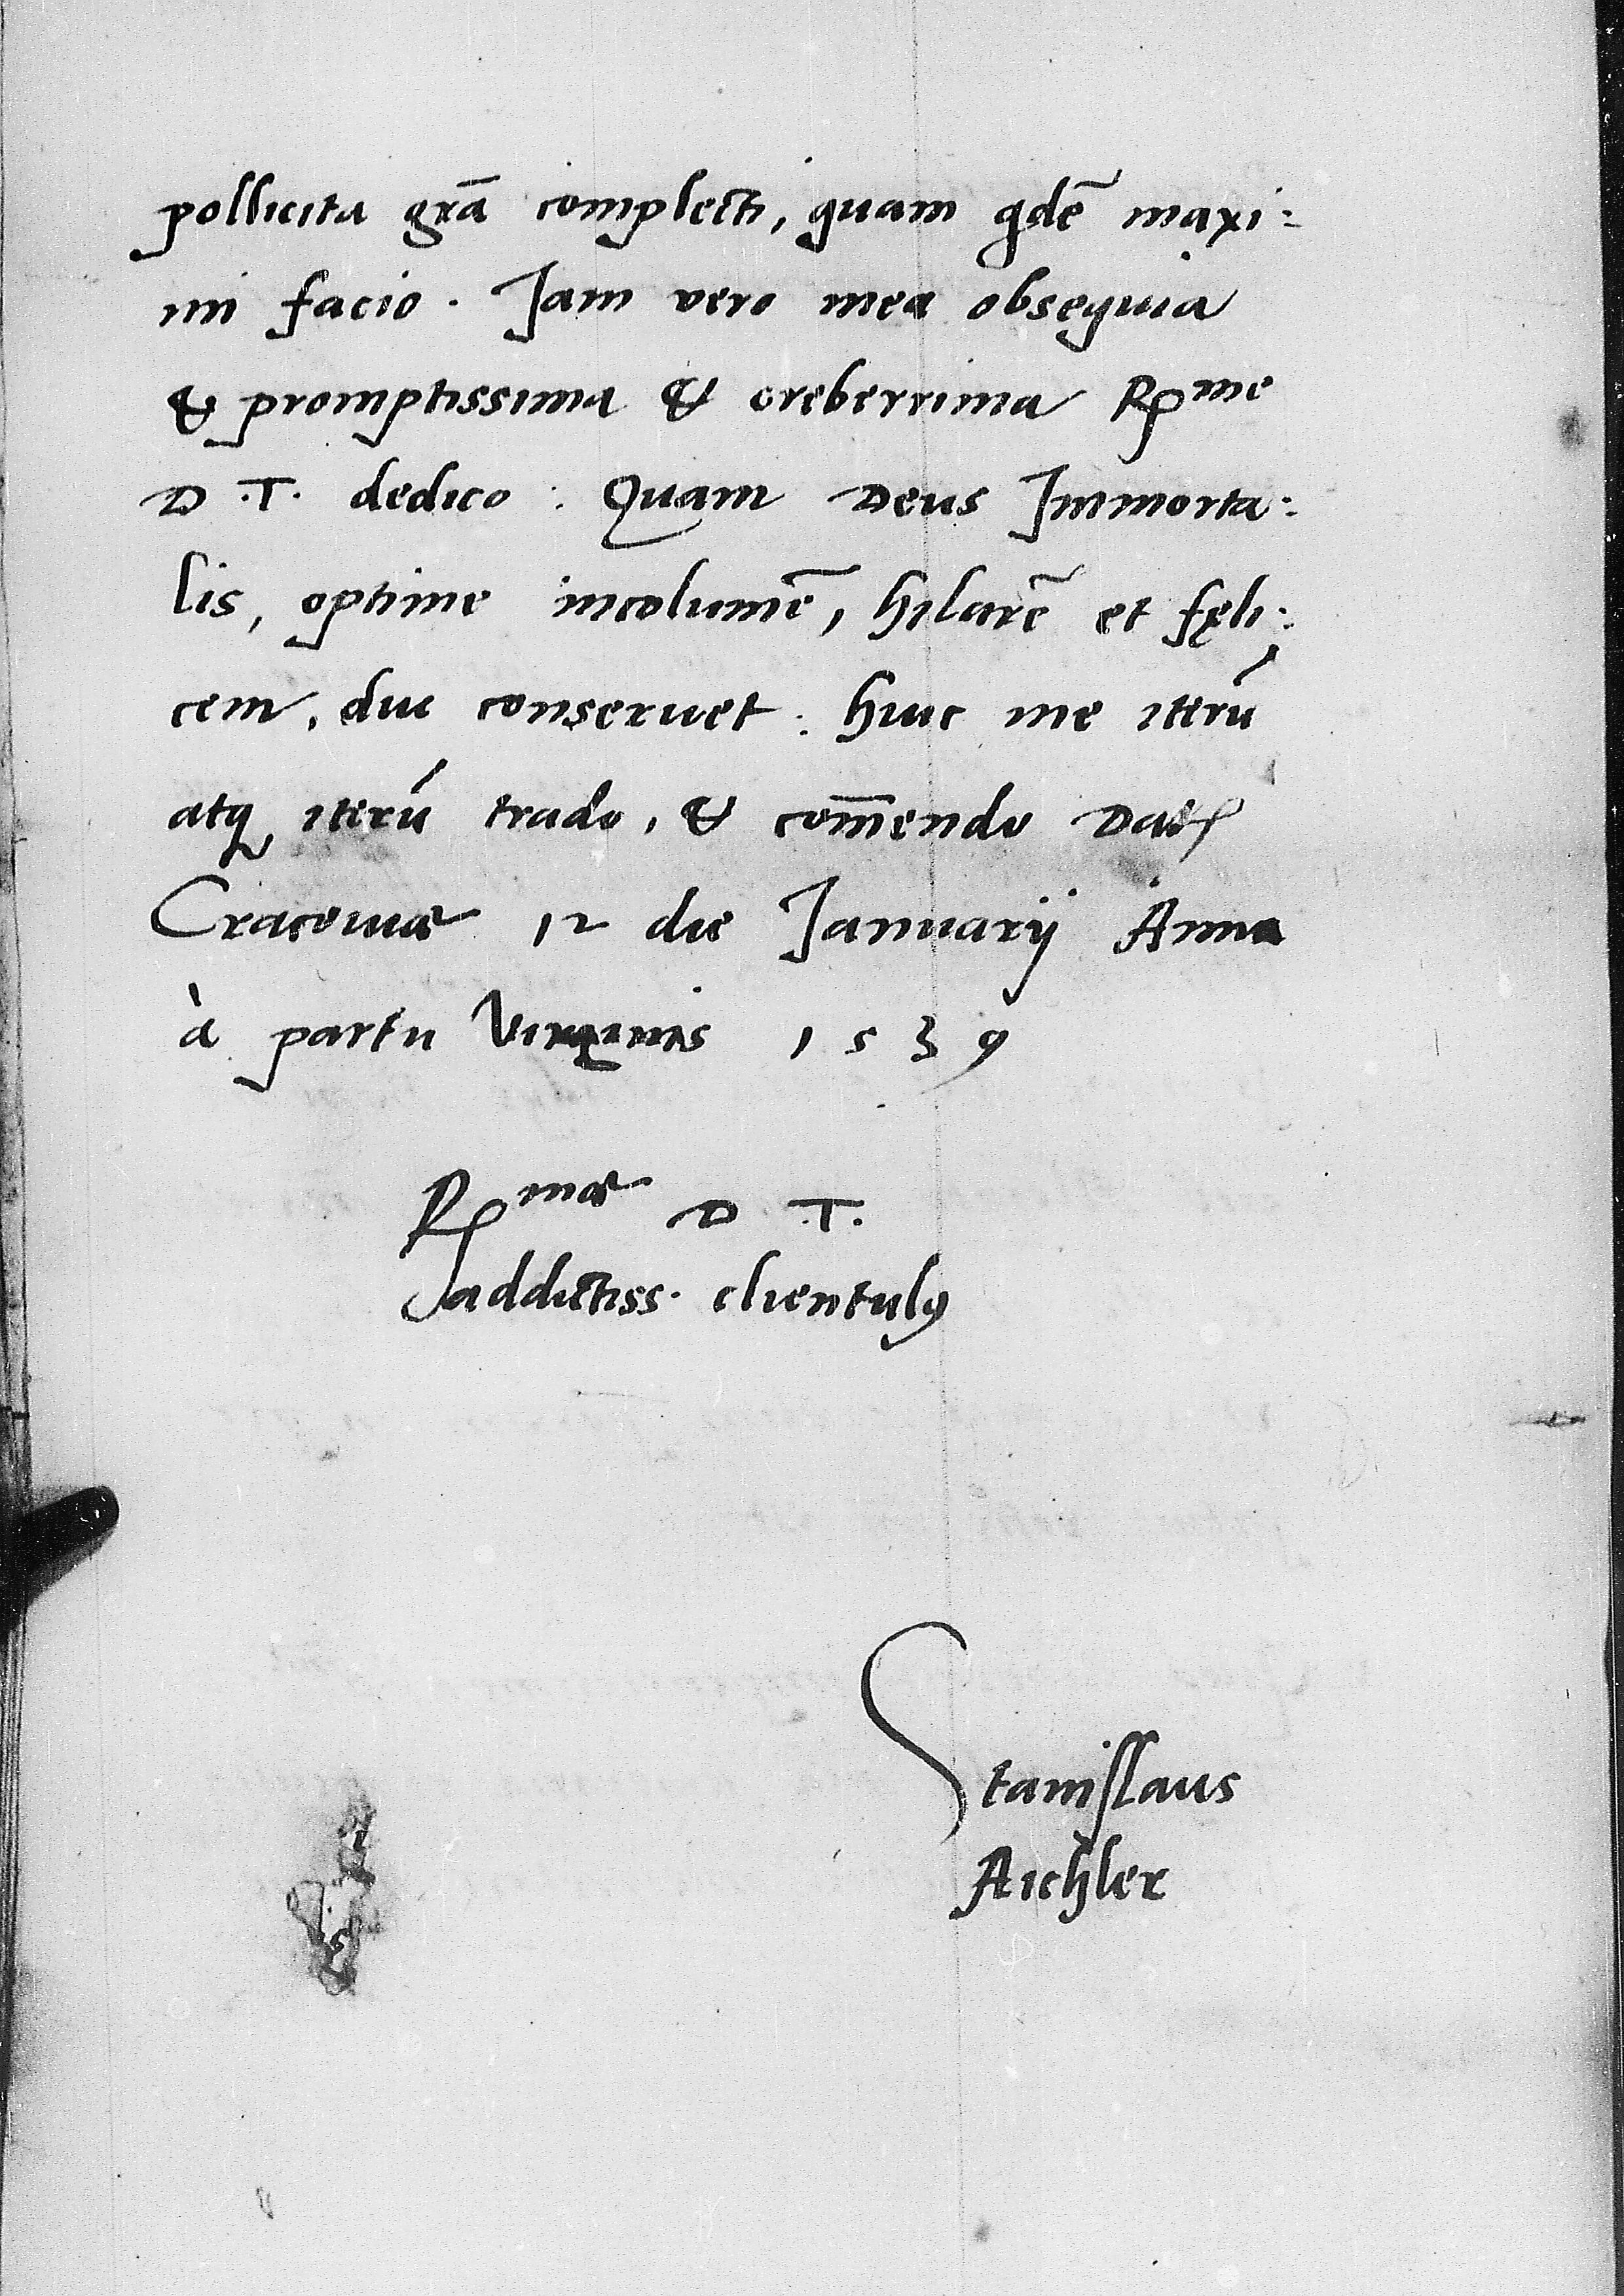 pollicita gra̅ complecti, quam qdẽ maxi:
mi facio. Jam vero mea obsequia
& promptissima & creberrima Rme
D.T. dedico: Quam Deus Immorta:
lis, optime incolumẽ, hilarẽ et fęli:
cem, diu conseruet: huic me iterú
atq iterú trado, & com̅endo Datę
Cracouiæ 12 die Januarij Anno
à partu Virginis 1539
Rmæ D T.
addictiss. clientulꝰ
Stanislaus
Aichler